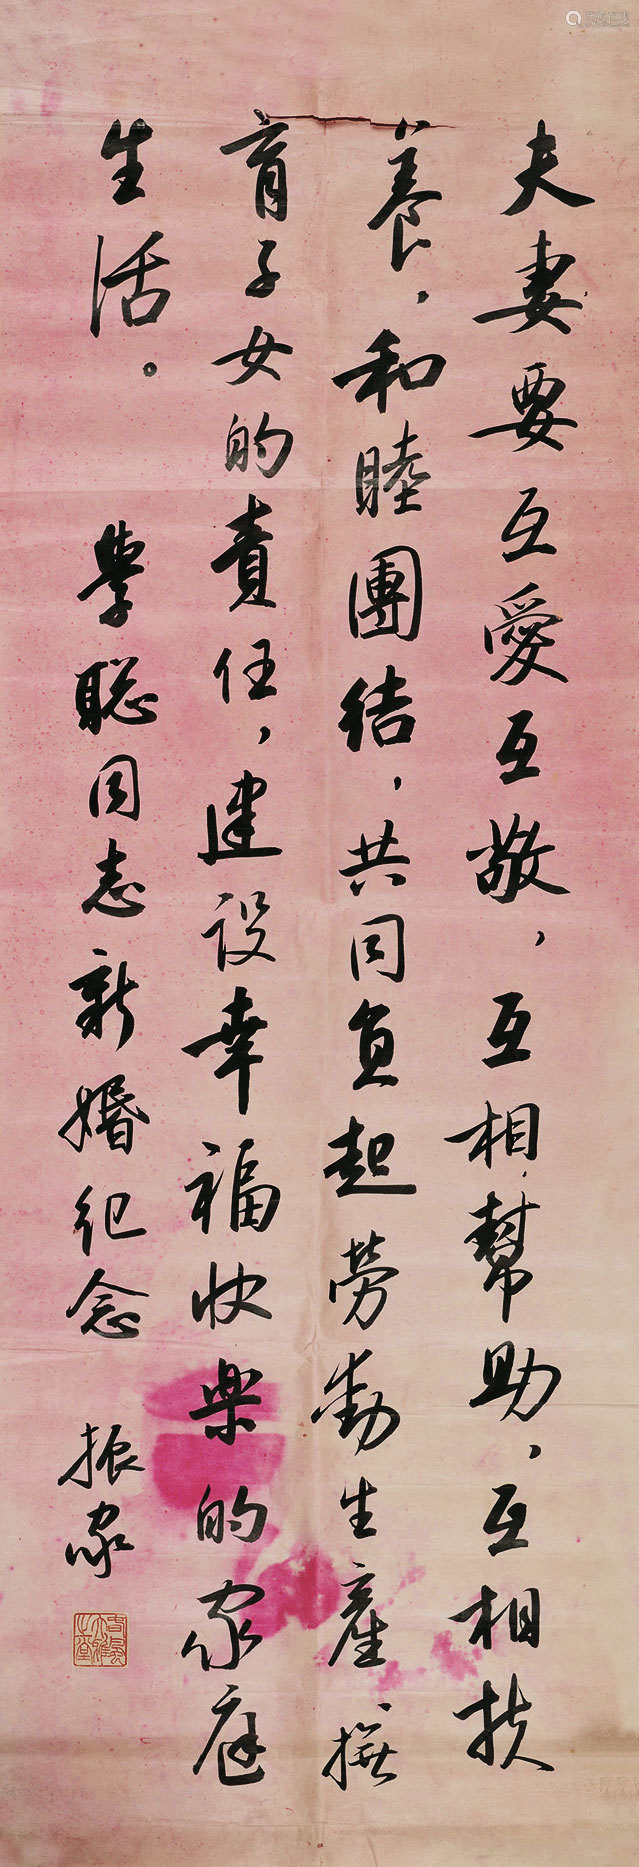 夫妻要互愛互敬，互相幫助，互相扶
養，和睦團結，共同負起勞動生產撫
育子女的責任，建設幸福快樂的家庭
生活。
學聰同志新婚纪念
振家